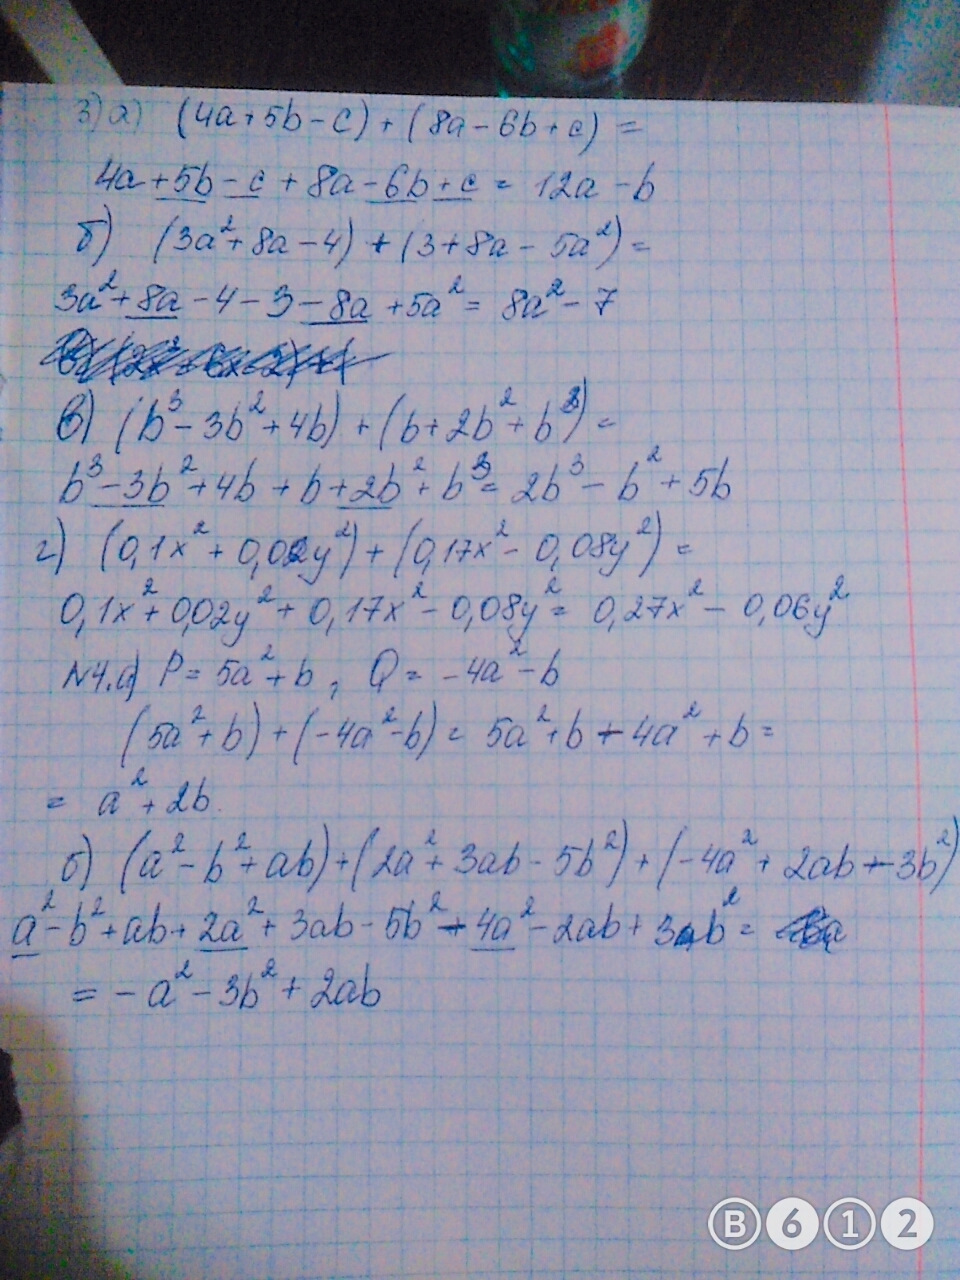 3) а) (4a+5b-c)+(8a-6b+c)=
4a+5b-c+8a-6b+c= 12a-b
б) (3a²+8a-4)+(3+8a-5a²)=
3a²+8a-4-3-8a+5a²= 8a²-7
в) (b³-3b²+4b)+(b+2b²+b³)=
b³-3b²+4b+b+2b²+b³= 2b³-b²+5b
г) (0,1x²+0,02y²)+(0,17x²-0,08y²)=
0,1x²+0,02y²+0,17x²-0,08y²= 0,27x²-0,06y²
N4.а) P=5a²+b, Q=-4a²-b
(5a²+b)+(-4a²-b)= 5a²+b-4a²+b=
= a²+2b.
б) (a²-b²+ab)+(2a²+3ab-5b²)+(-4a²+2ab-3b²)
a²-b²+ab+2a²+3ab-5b²-4a²-2ab+3b²=
= -a²-3b²+2ab
B612